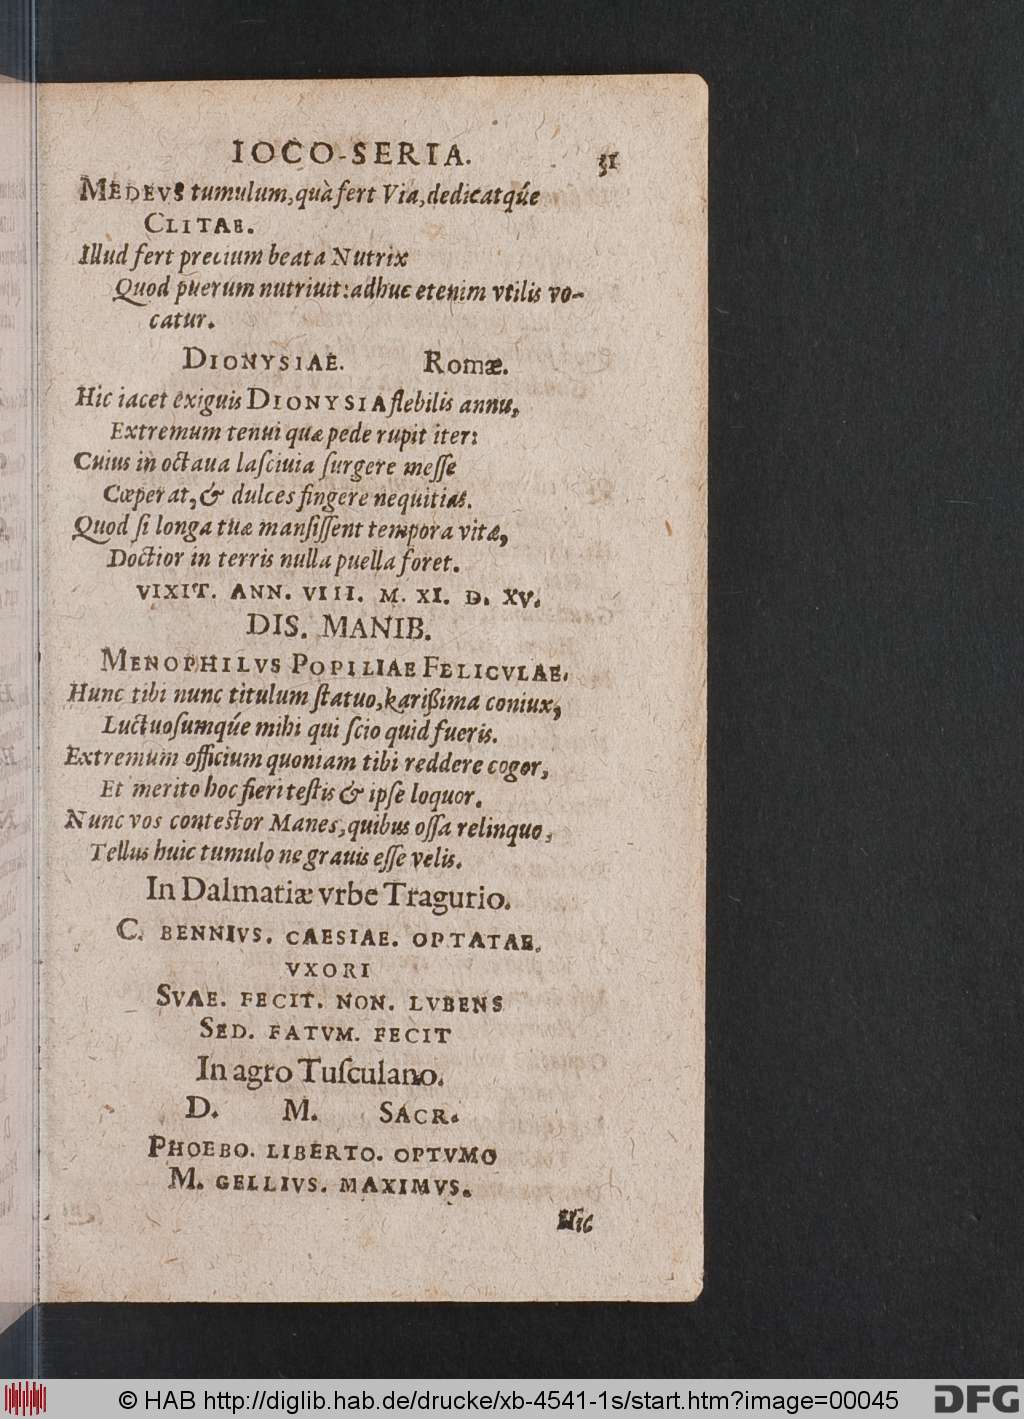 IOCO-SERIA. 31
MEDEVS tumulum, quà fert Via, dedicatq́ue
CLITAE.
Illud fert precium beata Nutrix
Quod puerum nutriuit: adhuc etenim vtilis vo-
catur.
DIONYSIAE. Romæ.
Hic iacet exiguis DIONYSIA flebilis annis,
Extremum tenui quæ pede rupit iter:
Cuius in octaua laſciuia ſurgere meſſe
Cœperat, & dulces fingere nequitias.
Quod ſi longa tuæ manſiſſent tempora vitæ,
Doctior in terris nulla puella foret.
VIXIT. ANN. VIII. M. XI. D. XV.
DIS. MANIB.
MENOPHILVS POPILIAE FELICVLAE,
Hunc tibi nunc titulum ſtatuo, karißima coniux,
Luctuoſumq́ue mihi qui ſcio quid fueris.
Extremum officium quoniam tibi reddere cogor,
Et merito hoc fieri teſtis & ipſe loquor.
Nunc vos conteſtor Manes, quibus oſſa relinquo,
Tellus huic tumulo ne grauis eſſe velis.
In Dalmatiæ vrbe Tragurio.
C. BENNIVS. CAESIAE. OPTATAE.
VXORI
SVAE. FECIT. NON. LVBENS
SED. FATVM. FECIT
In agro Tuſculano.
D. M. SACR.
PHOEBO. LIBERTO. OPTVMO
M. GELLIVS. MAXIMVS.
Hic
© HAB http://diglib.hab.de/drucke/xb-4541-1s/start.htm?image=00045
DFG